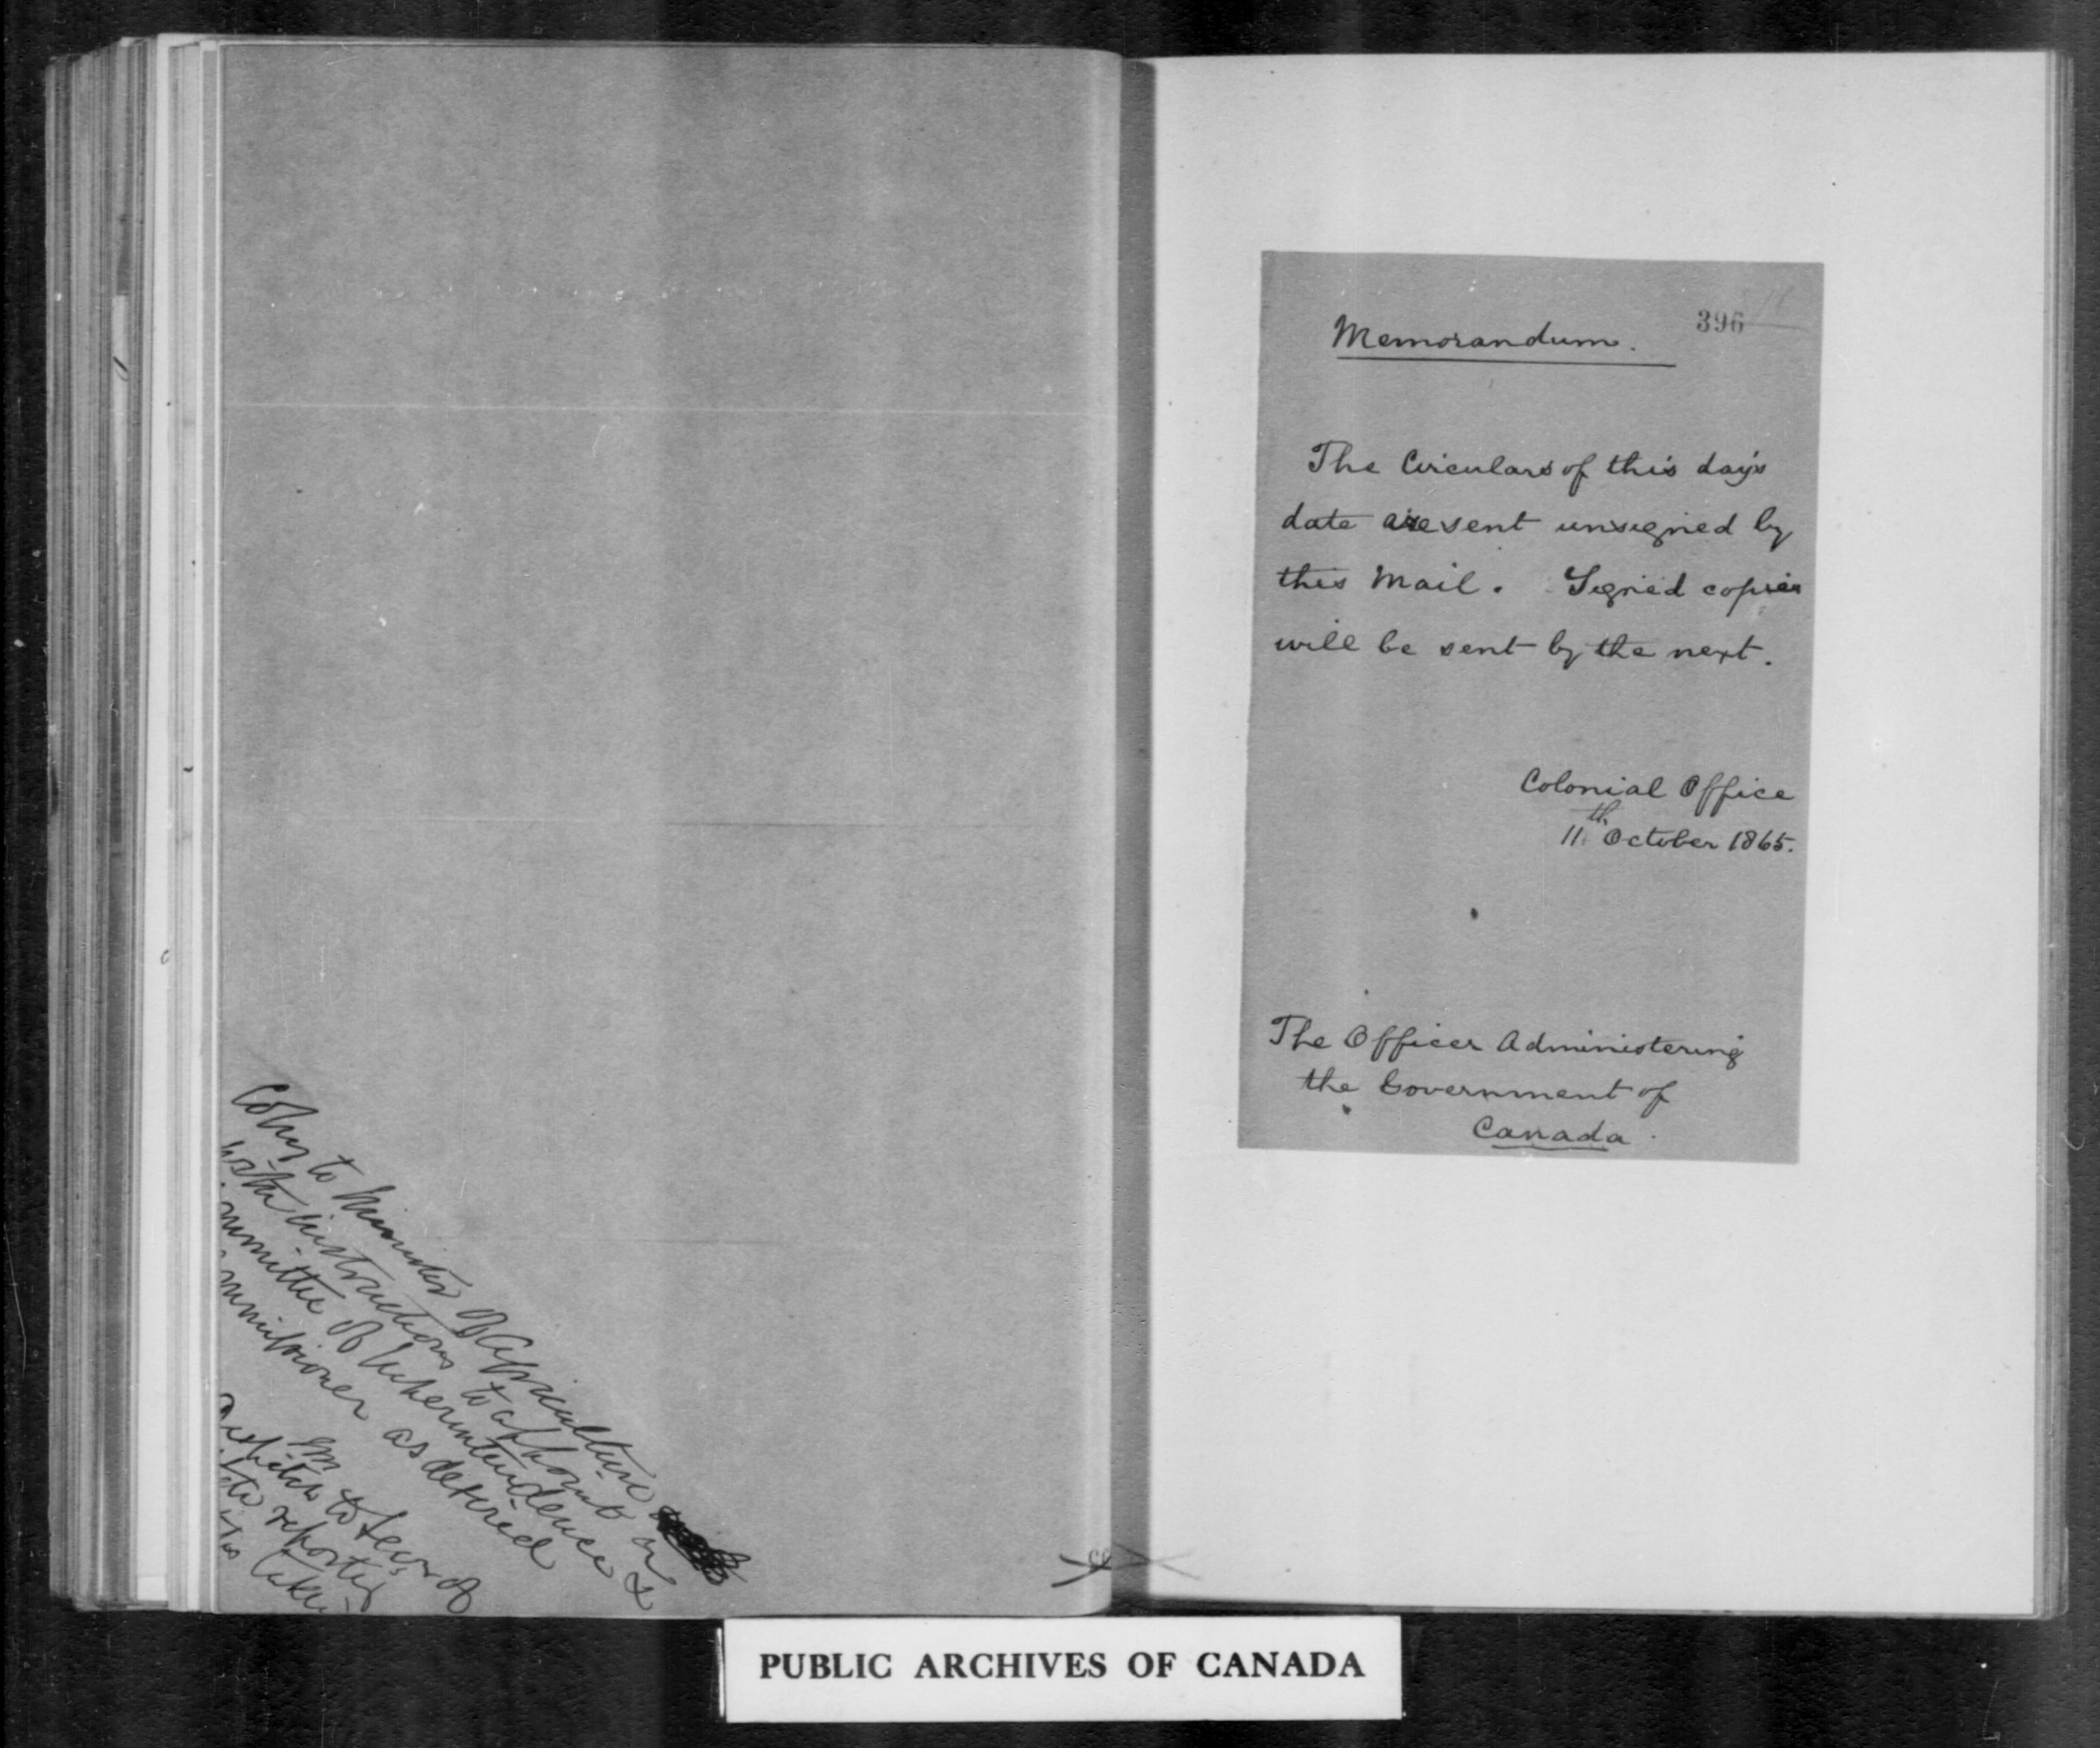 Copy to Minister of Agriculture
with instructions to appoint a
Committee of Superintendence &
Commissioner as desired
to Secy of
reported
taken
396
Memorandum.
The Circulars of this day's
date are sent unsigned by
this Mail. Signed copies
will be sent by the next.
Colonial Office
11th October 1865.
The Officer Administering
the Government of
Canada.
PUBLIC ARCHIVES OF CANADA